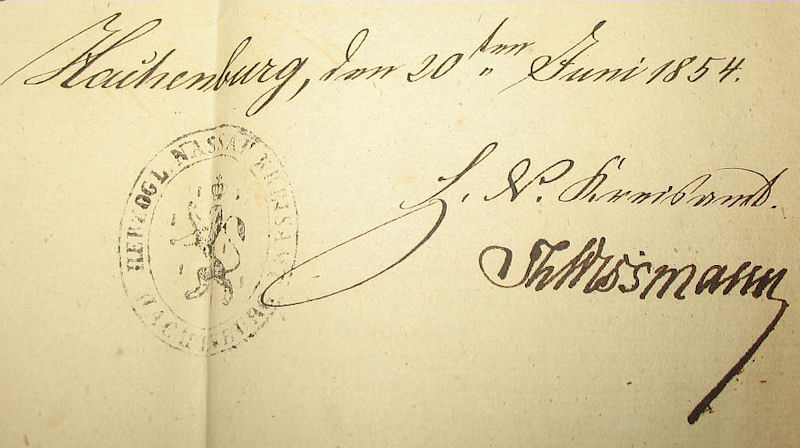 Hachenburg, den 20ten Juni 1854.
H. N. Kreisamt.
HERZOGL. NASSAU KREISAMT
HACHENBURG